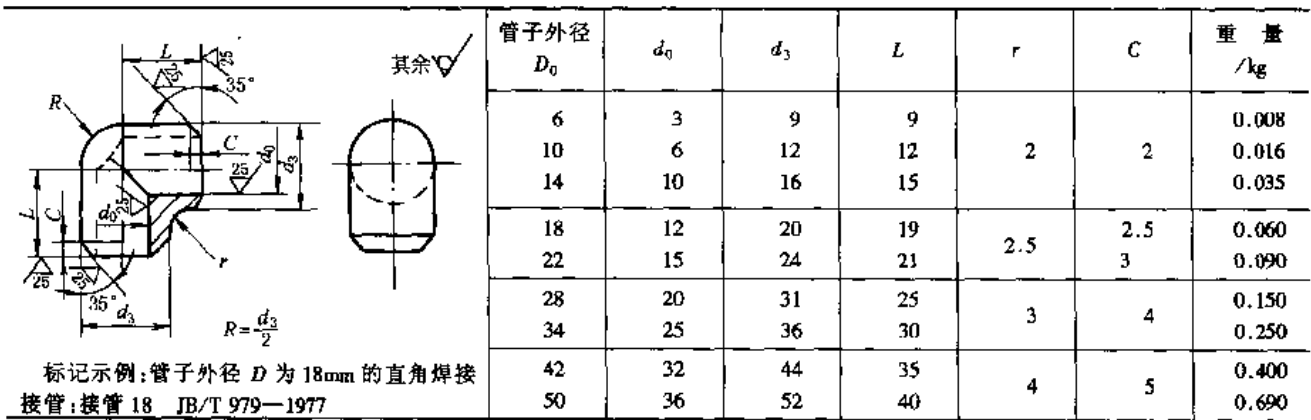 其余
L
25
25
35°
R
C
25
d₀
d₃
L
C
d₀
25
r
25
25
35°
d₃
R=d₃/2
标记示例:管子外径 D 为 18mm 的直角焊接
接管:接管 18 JB/T 979—1977
管子外径 D₀ d₀ d₃ L r C 重 量 /kg
6 3 9 9 2 2 0.008
10 6 12 12 0.016
14 10 16 15 0.035
18 12 20 19 2.5 2.5 0.060
22 15 24 21 3 0.090
28 20 31 25 3 4 0.150
34 25 36 30 0.250
42 32 44 35 4 5 0.400
50 36 52 40 0.690